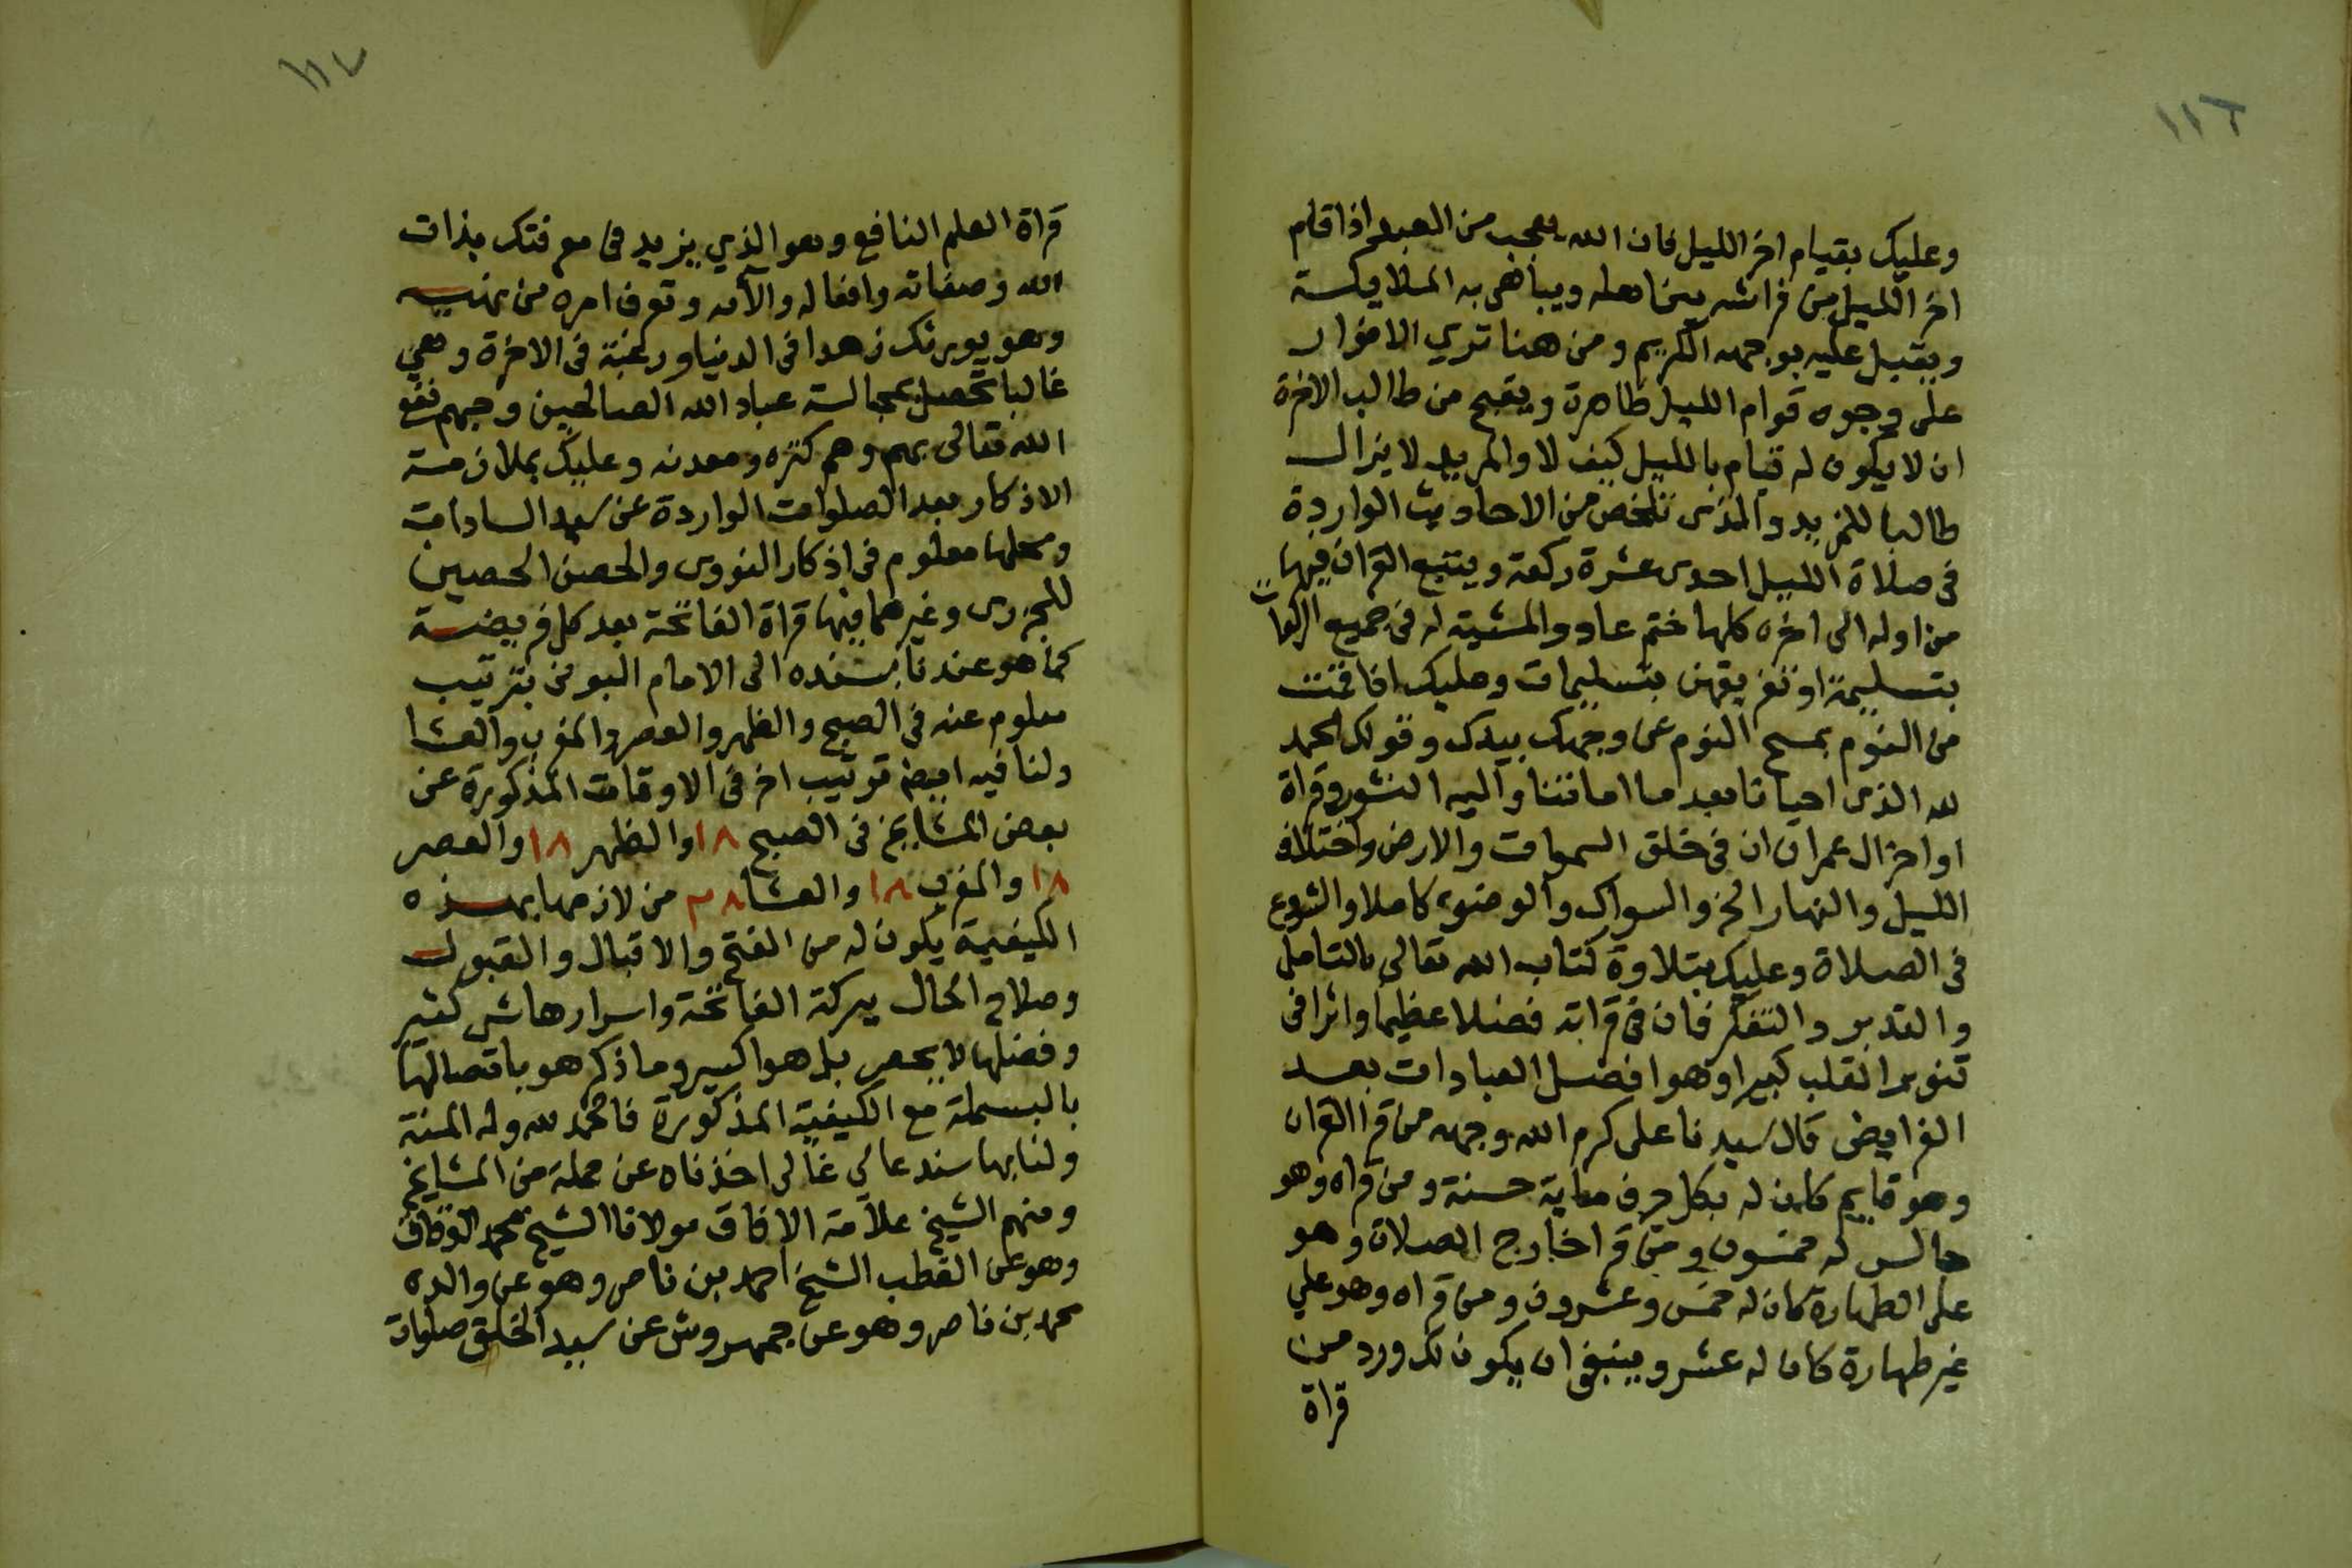 ١١٦
وعليك بقيام اخر الليل فان الله يعجب من العبد اذا قام
اخر الليل من فراشه بين اهله ويباهى به الملايكة
ويقبل عليه بوجهه الكريم ومن هنا تري الانوار
على وجوه قوام الليل ظاهرة ويقبح من طالب الاخرة
ان لا يكون له قيام بالليل كيف لا والمريد لا يزال
طالبا للمزيد والذى تلخص من الاحاديث الواردة
فى صلاة الليل احدى عشرة ركعة ويتبع القران فيها
من اوله الى اخره كلها ختم عاد والمشيته له فى جميع الركعات
بتسليمة او تفريقهن بتسليمات وعليك اذا قمت
من النوم بمسح النوم عن وجهك بيدك وقولك الحمد
لله الذى احيانا بعد ما اماتنا واليه النشور وقراة
اواخر ال عمران ان فى خلق السموات والارض واختلاف
الليل والنهار الخ والسواك والوضوء كاملا والشروع
فى الصلاة وعليك بتلاوة كتاب الله تعالى بالتامل
والتدبر والتفكر فان فى قراته فضلا عظيما واثرا فى
تنوير القلب كبيرا وهو افضل العبادات بعد
الفرايض قال سيدنا على كرم الله وجهه من قرا القران
وهو قايم كان له بكل حرف ماية حسنة ومن قراه وهو
جالس له خمسون ومن قرا خارج الصلاة وهو
على الطهارة كان له خمس وعشرون ومن قراه وهو علي
غير طهارة كان له عشر وينبغى ان يكون لك ورد من
قراة
١١٧
قراة العلم النافع وهو الذي يزيد فى معرفتك بذات
الله وصفاته وافعاله والآئه وتعرف امره من نهيه
وهو يورثك زهدا فى الدنيا ورغبة فى الاخرة وهي
غالبا تحصل بمجالسة عباد الله الصالحين وحبهم نفع
الله تعالى بهم وهم كنزه ومعدنه وعليك بملازمة
الاذكار بعد الصلوات الواردة عن سيد السادات
ومحلها معلوم فى اذكار النووى والحصن الحصين
للجزرى وغيرهما فيها قراة الفاتحة بعد كل فريضة
كما هو عندنا بسنده الى الامام البونى بترتيب
معلوم عنه فى الصبح والظهر والعصر والمغرب والعشا
ولنا فيه ايضا ترتيب اخر فى الاوقات المذكورة عن
بعض المشايخ فى الصبح ١٨ والظهر ١٨ والعصر
١٨ والمغرب ١٨ والعشا ٢٨ من لازمها بهذه
الكيفية يكون له من الفتح والاقبال والقبول
وصلاح الحال ببركة الفاتحة واسرارها شى كثير
وفضلها لا يحصر بل هو اكسير وما ذكر هو باتصالها
بالبسملة مع الكيفية المذكورة فالحمد لله وله المنة
ولنا بها سند عالي غالى اخذناه عن جملة من المشايخ
ومنهم الشيخ علامة الافاق مولانا الشيخ محمد الزقاق
وهو عن القطب الشيخ احمد بن ناصر وهو عن والده
محمد بن ناصر وهو عن جمهروش عن سيد الخلق صلوات